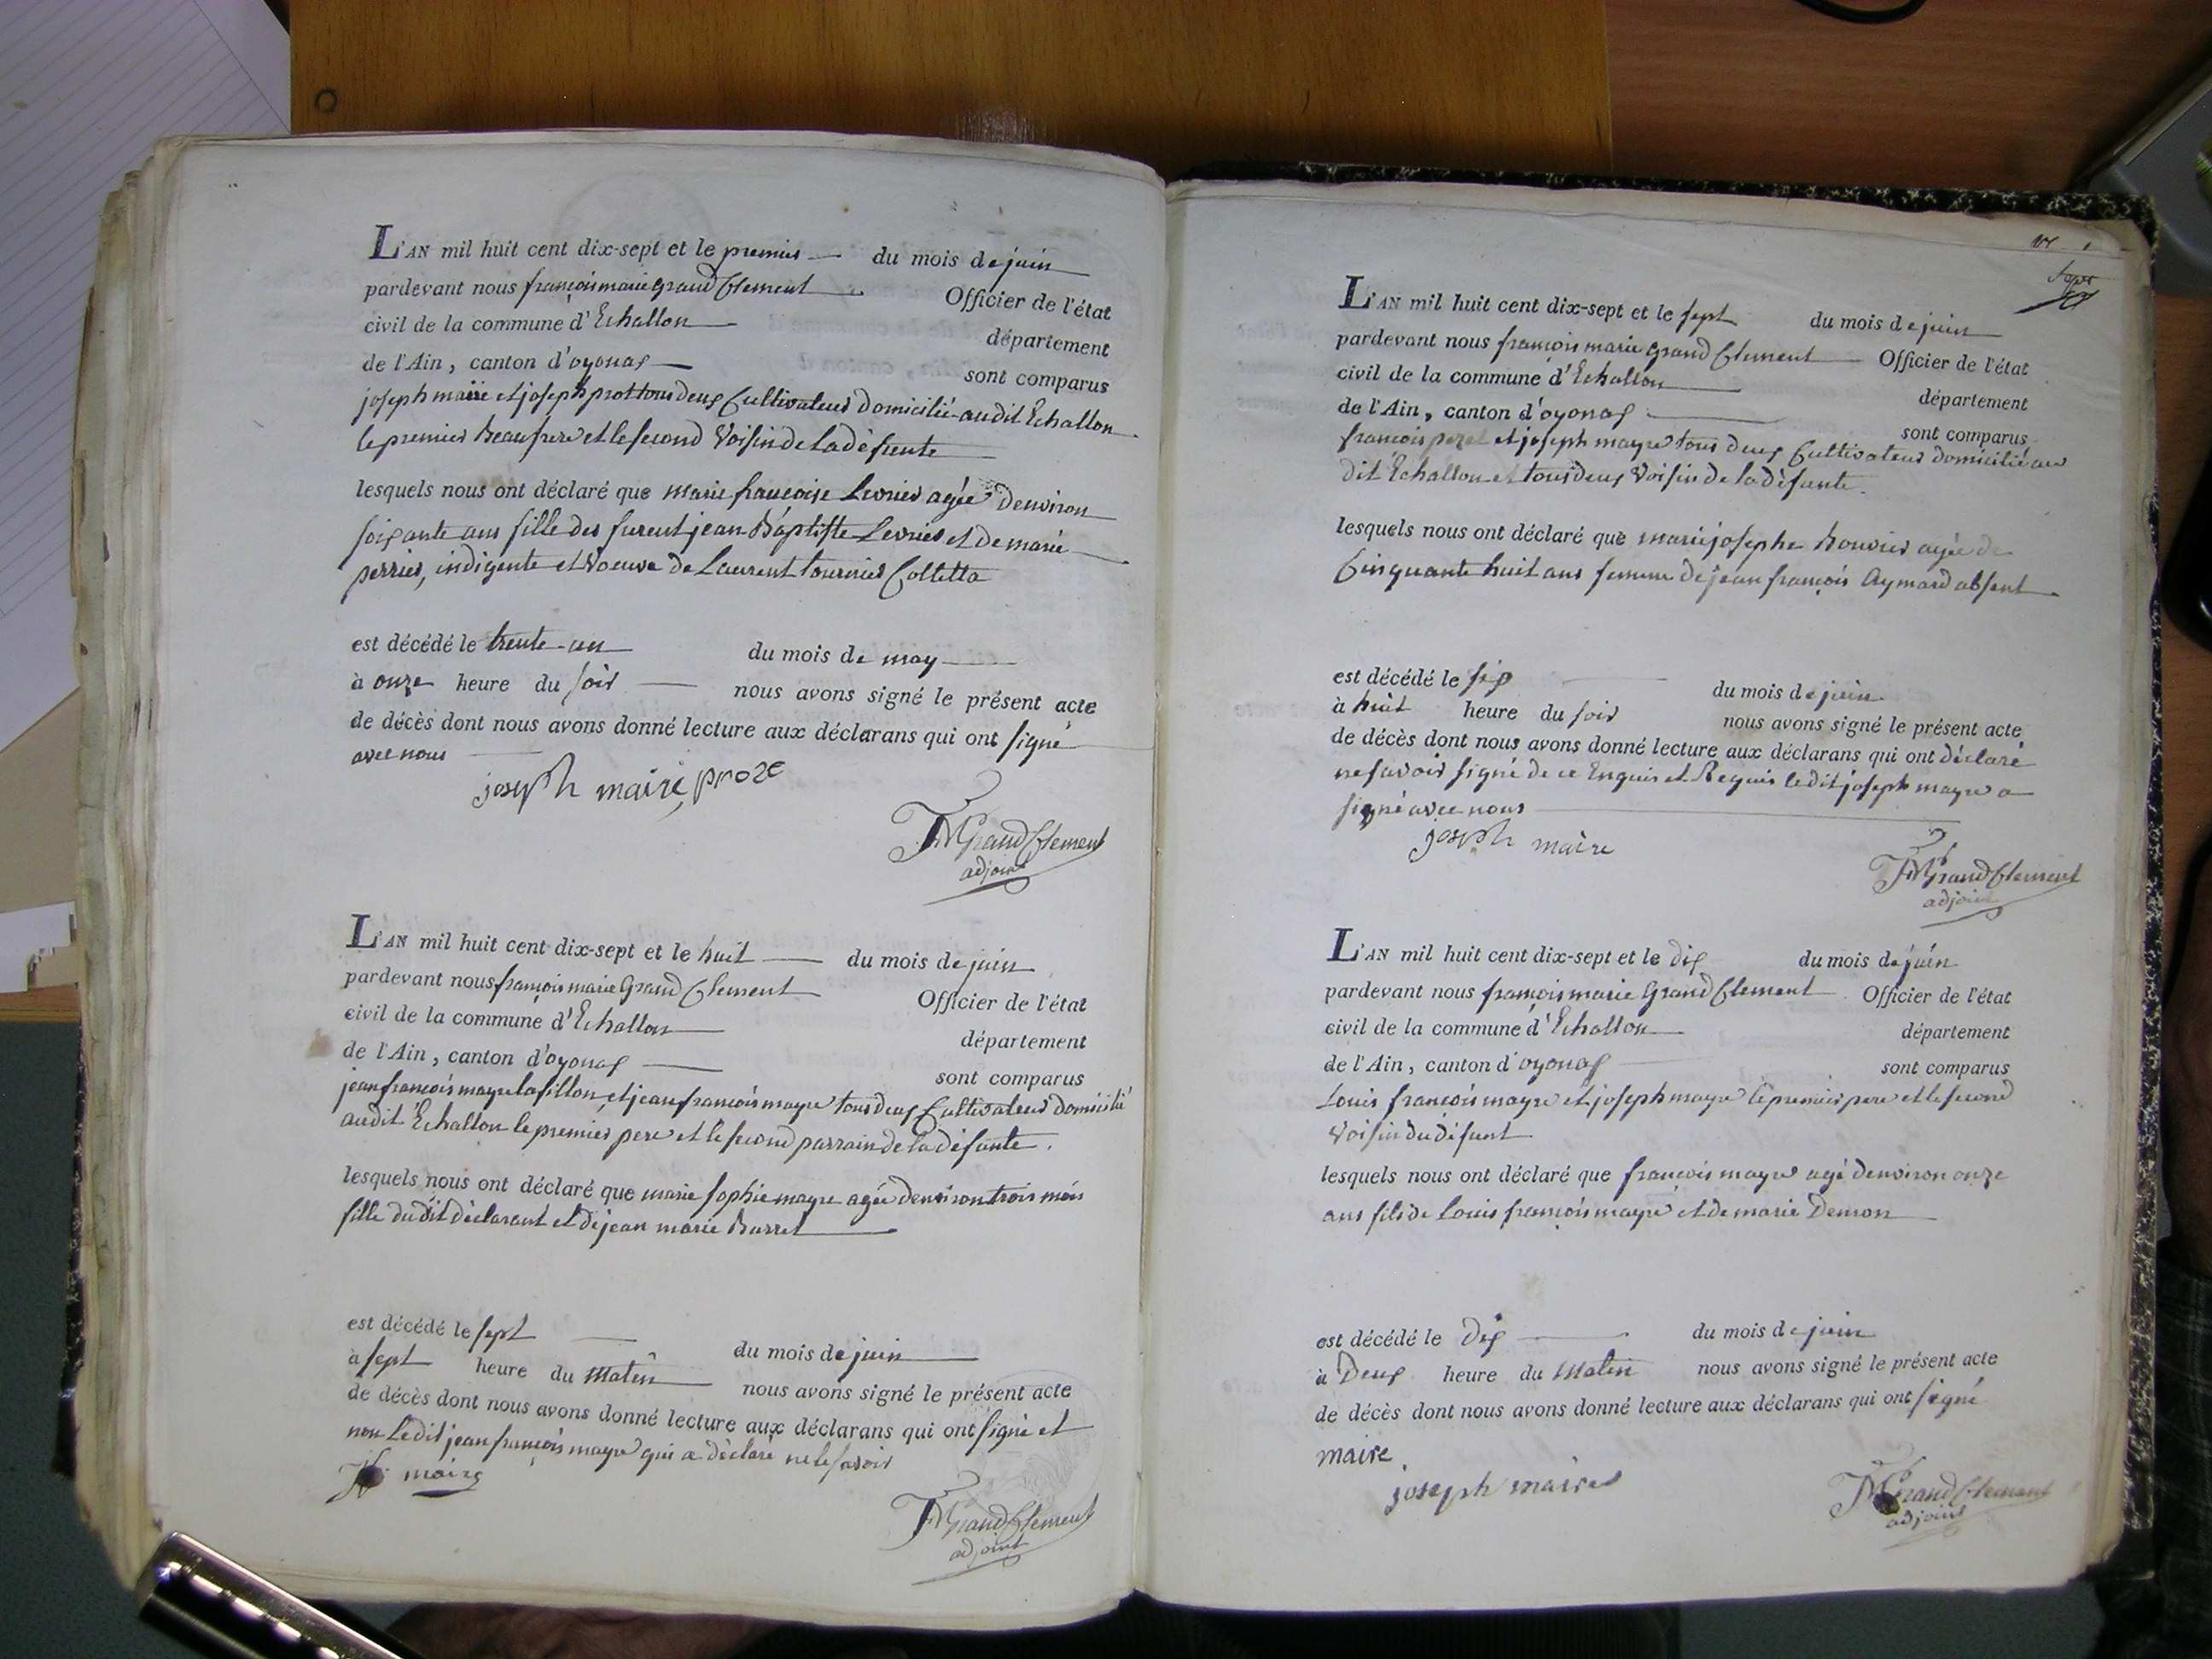 L'AN mil huit cent dix-sept et le premier du mois de juin
pardevant nous françois marie grand Clement Officier de l'état
civil de la commune d'Echallon département
de l'Ain, canton d'oyonax sont comparus
joseph maire et joseph prost tous deux Cultivateurs domicilié audit Echallon
le premier Beaufrere et le second Voisin de la défunte
lesquels nous ont déclaré que marie françoise Levrier agée denviron
soixante ans fille des furent jean Baptiste Levrier et de marie
perrier, indigente et Voeuve de Laurent tournier Colletta
est décédé le trente-un du mois de may
à onze heure du soir nous avons signé le présent acte
de décès dont nous avons donné lecture aux déclarans qui ont signé
avec nous
joseph maire, proze
FMGrandClement
adjoint
L'AN mil huit cent dix-sept et le huit du mois de juin
pardevant nous françois marie Grand Clement Officier de l'état
civil de la commune d'Echallon département
de l'Ain, canton d'oyonax sont comparus
jean françois mayre lafillon, et jean françois mayre tous deux Cultivateurs domicilié
audit Echallon le premier pere et le second parrain de la défunte.
lesquels nous ont déclaré que marie sophie mayre agée denviron trois mois
fille dudit déclarant et de jean marie Burret
est décédé le sept du mois de juin
à sept heure du Matin nous avons signé le présent acte
de décès dont nous avons donné lecture aux déclarans qui ont signé et
non Ledit jean françois mayre qui a déclaré ne le savoir
maire
FMGrandClement
adjoint
L'AN mil huit cent dix-sept et le sept du mois de juin
pardevant nous françois marie grand Clement Officier de l'état
civil de la commune d'Echallon département
de l'Ain, canton d'oyonax sont comparus
françois et joseph mayre tous deux Cultivateurs domicilié au
dit Echallon et tous deux Voisin de la défunte.
lesquels nous ont déclaré que marie josephe Bouvier agée de
Cinquante huit ans femme de jean françois Aymard absent
est décédé le six du mois de juin
à huit heure du soir nous avons signé le présent acte
de décès dont nous avons donné lecture aux déclarans qui ont déclaré
ne savoir signé de ce Enquis et Requis ledit joseph mayre a
signé avec nous
joseph maire
FMGrandClement
adjoint
L'AN mil huit cent dix-sept et le dix du mois de juin
pardevant nous françois marie Grand Clement Officier de l'état
civil de la commune d'Echallon département
de l'Ain, canton d'oyonax sont comparus
Louis françois mayre et joseph mayre le premier pere et le second
Voisin du défunt
lesquels nous ont déclaré que françois mayre agé denviron onze
ans fils de Louis françois mayre et de marie Demon
est décédé le Dix du mois de juin
à Deux heure du Matin nous avons signé le présent acte
de décès dont nous avons donné lecture aux déclarans qui ont signé
maire
joseph maire
FMGrandClement
adjoint